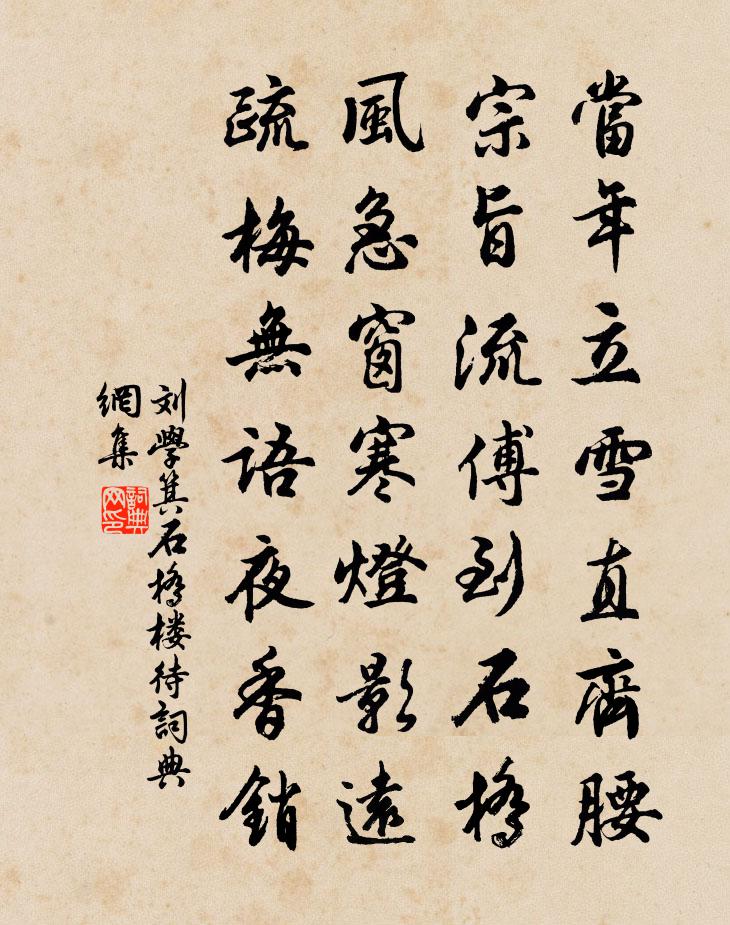 當年立雪直齊腰
宗旨流傅到石橋
風急窗寒燈影遠
疏梅無語夜香銷
刘學箕石橋楼待詞典
網集
詞典
网印